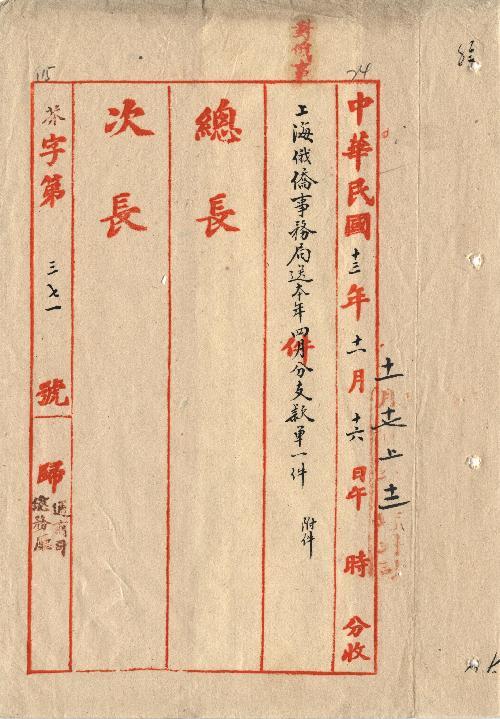 對俄事
中華民國十三年十一月十六日午 時 分收
上海俄僑事務局送本年四月分支款單一件 附件
件
總長
次長
茶字第 三七一 號 歸
通商司
總務廳
十一 月 十七 上 十一
24
115